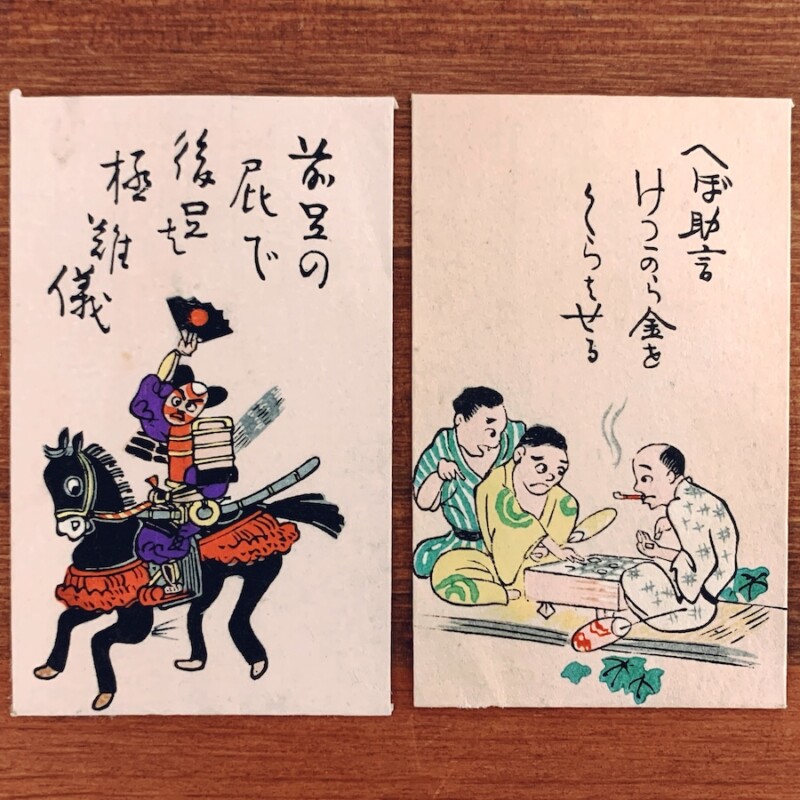 前足の
屁で
後足は
極難儀
へぼ助言
けつから金を
くらはせる